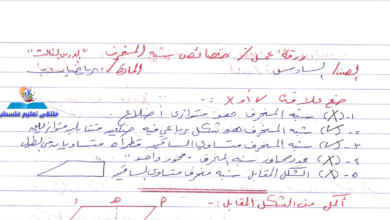 ورقة عمل / خصائص شبه المنحرف "الدرس الثالث"
الصف / السادس المادة / الرياضيات
ضع علامة √ أو X :-
١- (X) شبه المنحرف هو متوازي أضلاع.
٢- (√) شبه المنحرف هو شكل رباعي فيه ضلعين متقابلين متوازيين
٣- (√) شبه المنحرف متساوي الساقين قطراه متساويان بالطول
٤- (X) عدد محاور شبه المنحرف محور واحد
٥- (X) الشكل المقابل شبه منحرف متساوي الساقين
أكمل من الشكل المقابل:
ملتقى تعليم فلسطين